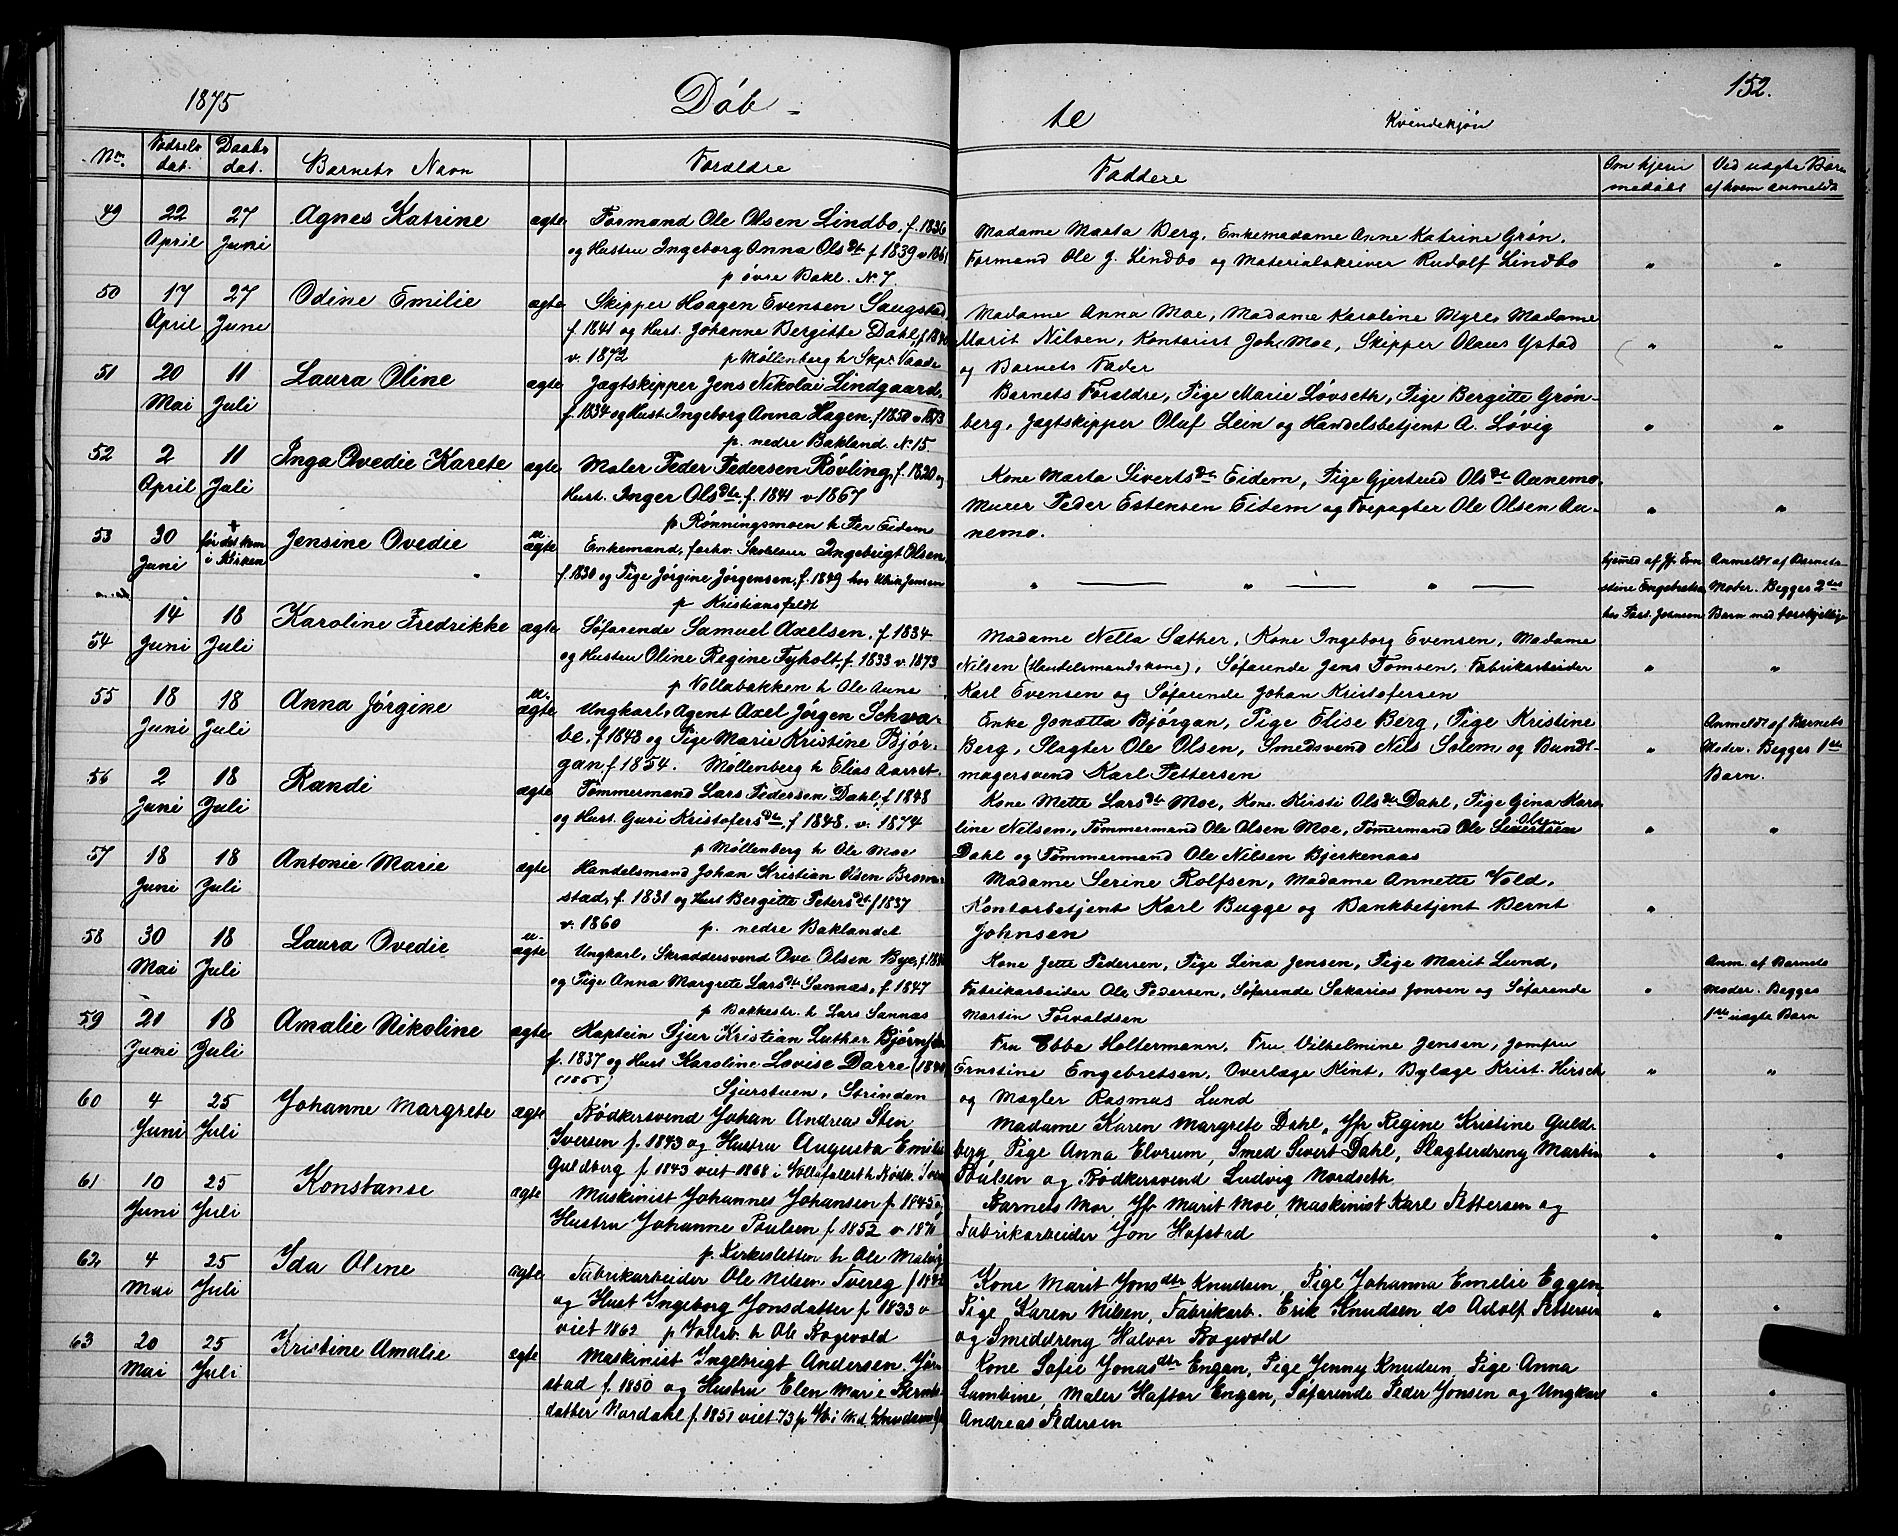 1875 Döb-te Kvindekjön 152.
No. Fødsels dat. Daabs dat. Barnets Navn Foraldre Faddere Om hjem medöbt Ved uagte Børn af hvem anmeldt
49 22 April 27 Juni Agnes Katrine agte Formand Ole Olsen Lindbo, f. 1836
og Hustru Ingeborg Anna Olsdt f 1839 v 1861
p övre Bakl. N. 7.
Madame Marta Berg, Enkemadame Anne Katrine Grön,
Formand Ole J. Lindbo og Materialskriver Rudolf Lindbo " "
50 17 April 27 Juni Odine Emilie agte Skipper Haagen Evensen Saugstad,
f. 1841 og Hust. Johanne Bergitte Dahl, f. 1840
v. 1872 p Möllenberg h Skpr. Vaade
Madame Anna Moe, Madame Karoline Myres Madame
Marit Nilsen, Kontorist Joh. Moe, Skipper Olaus Ystad
og Barnets Fader " "
51 20 Mai 11 Juli Laura Oline agte Jagtskipper Jens Nikolai Lindgaard,
f. 1834 og Hust. Ingeborg Anna Hagen, f 1850 v 1873
p. nedre Bakland. N. 15.
Barnets Foraldre, Pige Marie Lövseth, Pige Bergitte Grön-
berg, Jagtskipper Oluf Lein og Handelsbetjent A. Lövig " "
52 2 April 11 Juli Inga Ovedie Karete agte Maler Peder Pedersen Rövling, f. 1820 og
Hust. Inger Olsdtr, f. 1841 v 1867
p Rönningsmoen h Per Eidem
Kone Marta Sivertsdt Eidem, Pige Gjertrud Olsdt Aunemo,
Murer Peder Estensen Eidem og Forpagter Ole Olsen Au-
nemo. " "
53 30 Juni + før det kom i Kirken Jensine Ovedie u- agte Enkemand, forhv. Skolelærer Ingebrigt Olsen
f. 1830 og Pige Jörgine Jörgensen, f. 1849 hos Ulrik Jensen
p Kristiansfeldt
" — " — " —
hjemmed af Jfr. Ern
stine Engebretsen
hos Fast. Johnson
Anmeldt af Barnets
Moder. Begges 2det
Barn med forskjellige
54 14 Juni 18 Juli Karoline Fredrikke agte Söfarende Samuel Axelsen, f. 1834
og Hustru Oline Regine Tyholt, f. 1833 v. 1873
p Vollabakken h Ole Aune
Madame Nella Sæther, Kone Ingeborg Evensen, Madame
Nilsen (Handelsmandskone), Söfarende Jens Tomsen, Fabrikarbeider
Karl Evensen og Söfarende Johan Kristofersen " "
55 18 Juni 18 Juli Anna Jörgine u- agte Ungkarl, Agent Axel Jörgen Schwa-
be, f 1843 og Pige Marie Kristine Björ-
gan, f. 1854. Möllenberg h Elias Aarset-
Enke Jonetta Björgan, Pige Elise Berg, Pige Kristine
Berg, Slagter Ole Olsen, Smedsvend Nils Solem og Bundt-
magersvend Karl Pettersen "
Anmeldt af Barnets
Moder. Begges 1ste
Barn.
56 2 Juni 18 Juli Randi agte Tömmermand Lars Pedersen Dahl, f 1848
og Hust. Guri Kristofersdtr, f 1848. v. 1874
p Möllenberg h Ole Moe
Kone Mette Larsdt Moe, Kone Kirsti Olsdt Dahl, Pige Gina Karo
line Nilsen, Tömmermand Ole Olsen Moe, Tömermand Ole Sivertsen Olsen
Dahl og Tömmermand Ole Nilsen Bjerkenaas " "
57 18 Juni 18 Juli Antonie Marie agte Handelsmand Johan Kristian Olsen Brom-
stad, f. 1831 og Hust Bergitte Petersdt f 1837
v. 1860 p. nedre Baklandet
Madame Serine Rolfsen, Madame Annette Vold,
Kontorbetjent Karl Bugge og Bankbetjent Bernt
Johnsen "
58 30 Mai 18 Juli Laura Ovedie u- agte Ungkarl, Skraddersvend Ove Olsen Bye, f. 1846
og Pige Anna Margrete Larsdt Sannæs, f. 1847
p Bakkestr. h Lars Sannæs
Kone Jette Pedersen, Pige Lina Jensen, Pige Marit Lund,
Fabrikarbeider Ole Pedersen, Söfarende Sakarias Jonsen og Söfarende
Martin Torvaldsen "
Anm. af Barnets
Moder. Begges
1ste uagte Barn
59 21 Juni 18 Juli Amalie Nikoline agte Kaptein Sjur Kristian Luther Björn
f. 1837 og Hust Karoline Lovise Darre
(1865) Sjurstuen, Strinden
Fru Ebba Holtermann, Fru Vilhelmine Jensen, Jomfru
Ernstine Engebretsen, Overlæge Kint, Bylæge Krist. Hirsch
og Mægler Rasmus Lund " "
60 4 Juni 25 Juli Johanne Margrete agte Bödkersvend Johan Andrea Sten
Iversen f. 1843 og Hustru Augusta Emilie
Guldberg f 1843 viet 1868 i
Madame Karen Margrete Dahl, Jfr Regine Kristine Guld-
berg Pige Anna Elvrum, Smed Sivert Dahl, Slagterdreng Martin
Poulsen og Bödkersvend Ludvig Nordseth " "
61 10 Juni 25 Juli Konstanse agte Maskinist Johannes Johansen f 1845 og
Hustru Johanne Poulsen f 1852 v. 1871
p. Kirkesletten h Ole Malvig
Barnets Mor, Jfr Marit Moe, Maskinist Karl Pettersen og
Fabrikarbeider Jon Hofstad " "
62 4 Mai 25 Juli Ida Oline agte Fabrikarbeider Ole Nilsen Tvereg f 1842
og Hust Ingeborg Jonsdatter f 1833 v
viet 1862 p Vollsb. h Ole Bogevold
Kone Marit Jonsdtr Knudsen, Pige Johanna Emilie Eggen
Pige Karen Nilsen, Fabrikarb. Erik Knudsen do Adolf Pettersen
og Smeddreng Halvor Bogevold " "
63 20 Mai 25 Juli Kristine Amalie agte Maskinist Ingebrigt Andersen Jör-
stad f. 1850 og Hustru Elen Marie Bernts
datter Nordahl f. 1851 viet 73 p
Kone Sofie Jonasdtr Engan, Pige Jenny Knudsen, Pige Anna
Lumbine, Maler Haftor Engan, Söfarende Peder Jonsen og Ungkarl
Andreas Pedersen " "